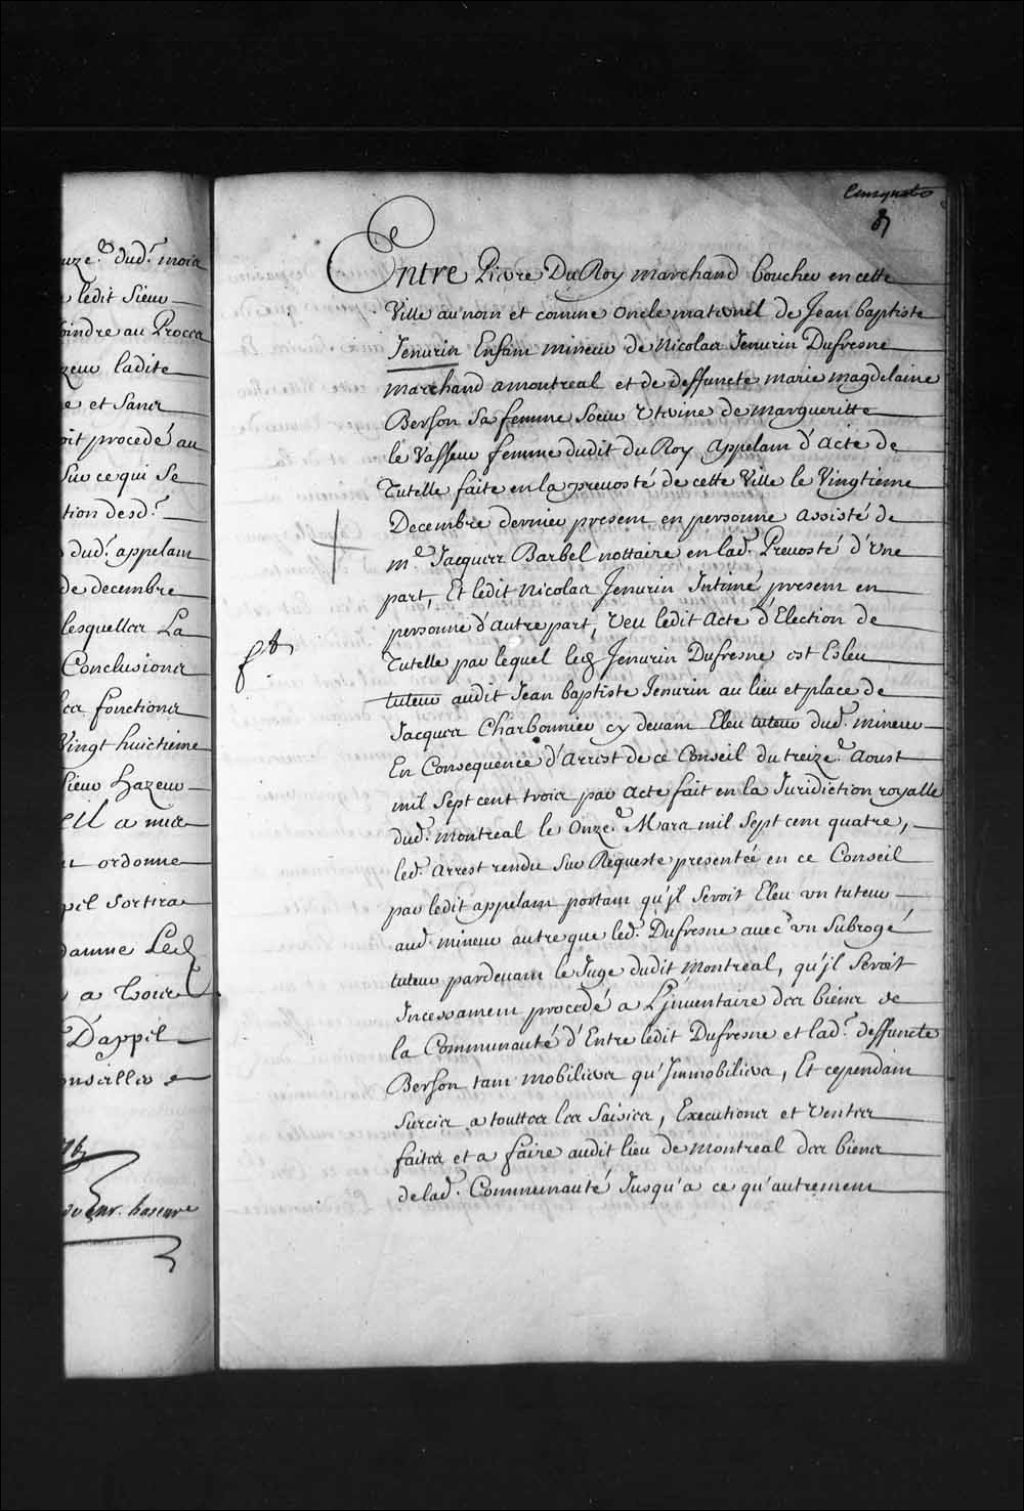 uze.e dud.t mois
ledit Sieur
joindre au Proces
zeur ladite
e et Sans
oit procedé au
Sur ce qui Se
tion desd.t
dud.t appelant
de decembre
lesquelles La
Conclusions
les fonctions
Vingt huictieme
Sieur hazeur
Ell a mis
ordonne
pel Sortira
damne Led
a Trois
D'appel
onseiller
Entre Pierre Du Roy marchand boucher en cette
Ville au nom et comme oncle maternel de Jean baptiste
Jenurin Enfant mineur de Nicolas Jenurin Dufresne
marchand a montreal et de deffuncte marie magdelaine
Berson Sa femme Soeur Uterine de margueritte
le Vasseur femme dudit du Roy appelant d'acte de
Tutelle faite en la prevosté de cette Ville le Vingtieme
Decembre dernier present en personne assisté de
m.e Jacques Barbel nottaire en lad.t Prevosté d'Vne
part, Et ledit Nicolas Jenurin Intimé present en
personne d'autre part, Veu ledit Acte d'Election de
Tutelle par lequel led Jenurin Dufresne est Esleu
tuteur audit Jean baptiste Jenurin au lieu et place de
Jacques Charbonnier cy devant Eleu tuteur dud.t mineur
En Consequence d'Arrest de ce Conseil du treize.e Aoust
mil Sept cent trois par Acte fait en la Juridiction royalle
dud.t montreal le Onze.e Mars mil Sept cent quatre,
led.t Arrest rendu Sur Requeste presentée en ce Conseil
par ledit appelant portant qu'jl Seroit Eleu vn tuteur
aud mineur autre que led.t Dufresne avec vn Subrogé
tuteur pardevant le Juge dudit Montreal, qu'jl Seroit
Incessament procedé a L'jnventaire des biens de
la Communauté d'Entre ledit Dufresne et lad.t deffuncte
Berson tant mobiliers qu'Jmmobiliers, Et cependant
Surcis a touttes les Saisies, Executions et Ventes
faites et a faire audit lieu de Montreal des biens
de lad.t Communauté Jusqu'a ce qu'autrement